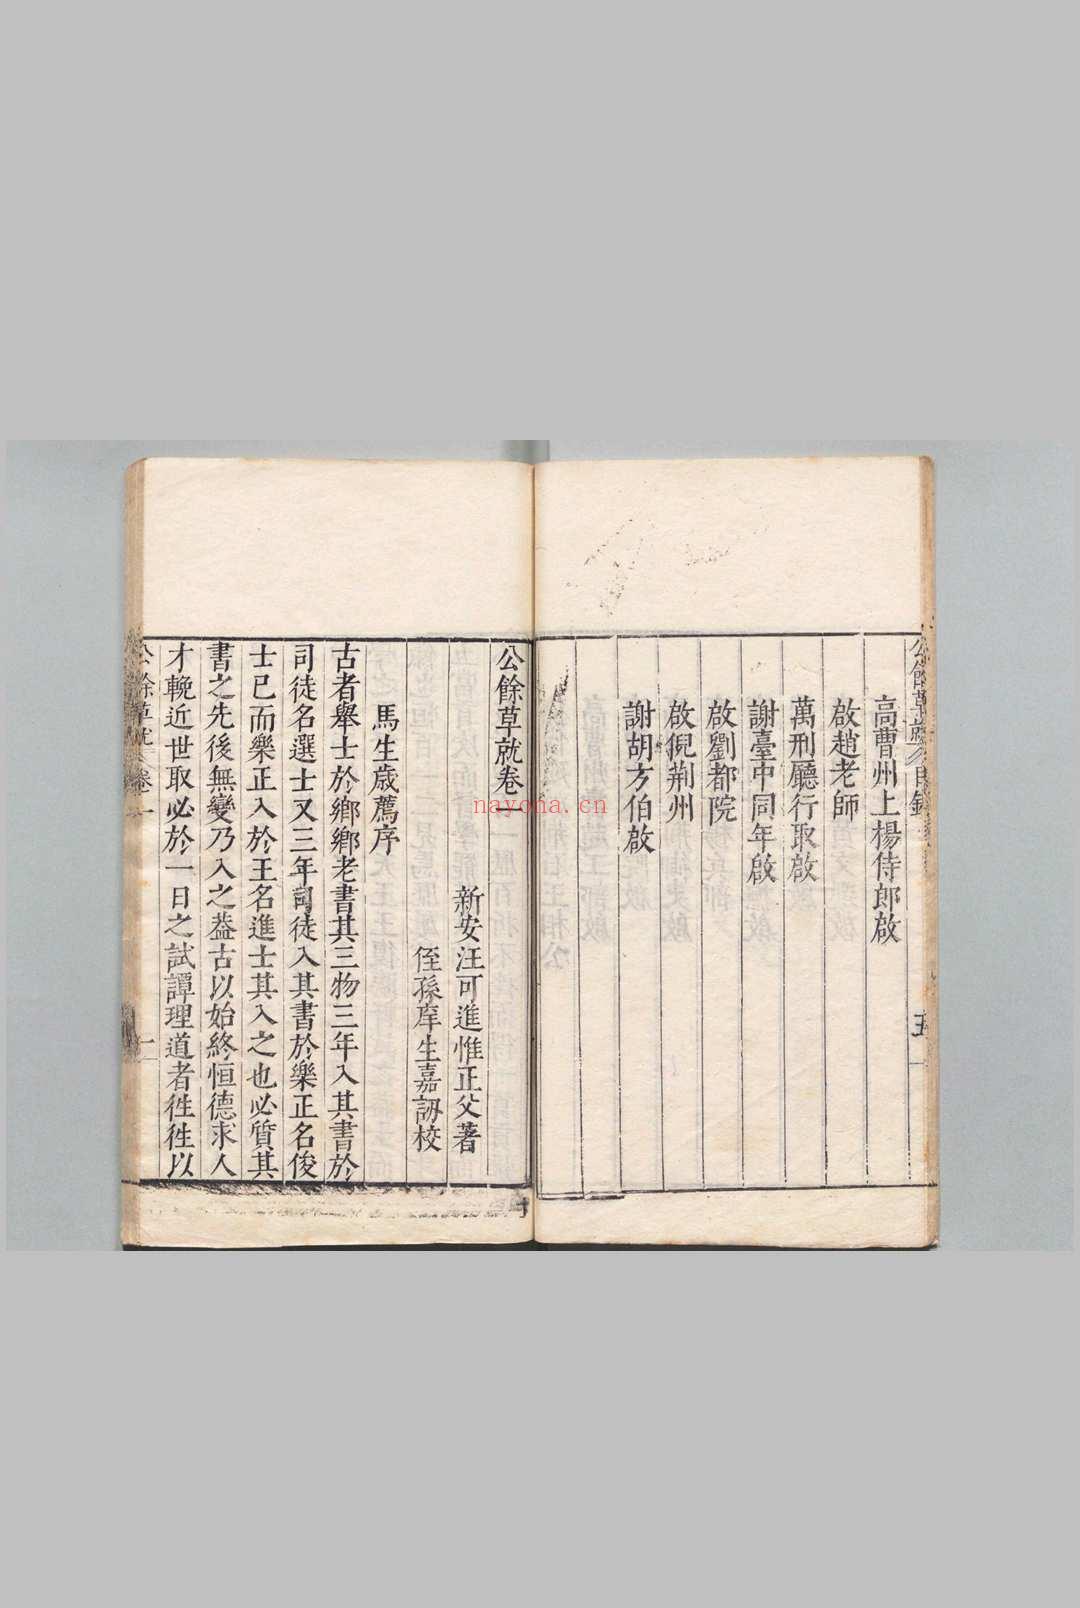 高曹州上楊侍郎啟
啟趙老師
萬刑廳行取啟
謝臺中同年啟
啟劉都院
啟倪荆州
謝胡方伯啟
五
公餘草就卷一
新安汪可進惟正父著
侄孫庠生嘉訒校
馬生歲薦序
古者舉士於鄉鄉老書其三物三年入其書於
司徒名選士又三年司徒入其書於樂正名俊
士已而樂正入於王名進士其入之也必質其
書之先後無變乃入之葢古以始終恒德求人
才輓近世取必於一日之試譚理道者徃徃以
公餘草就 卷一 一
nayona.cn